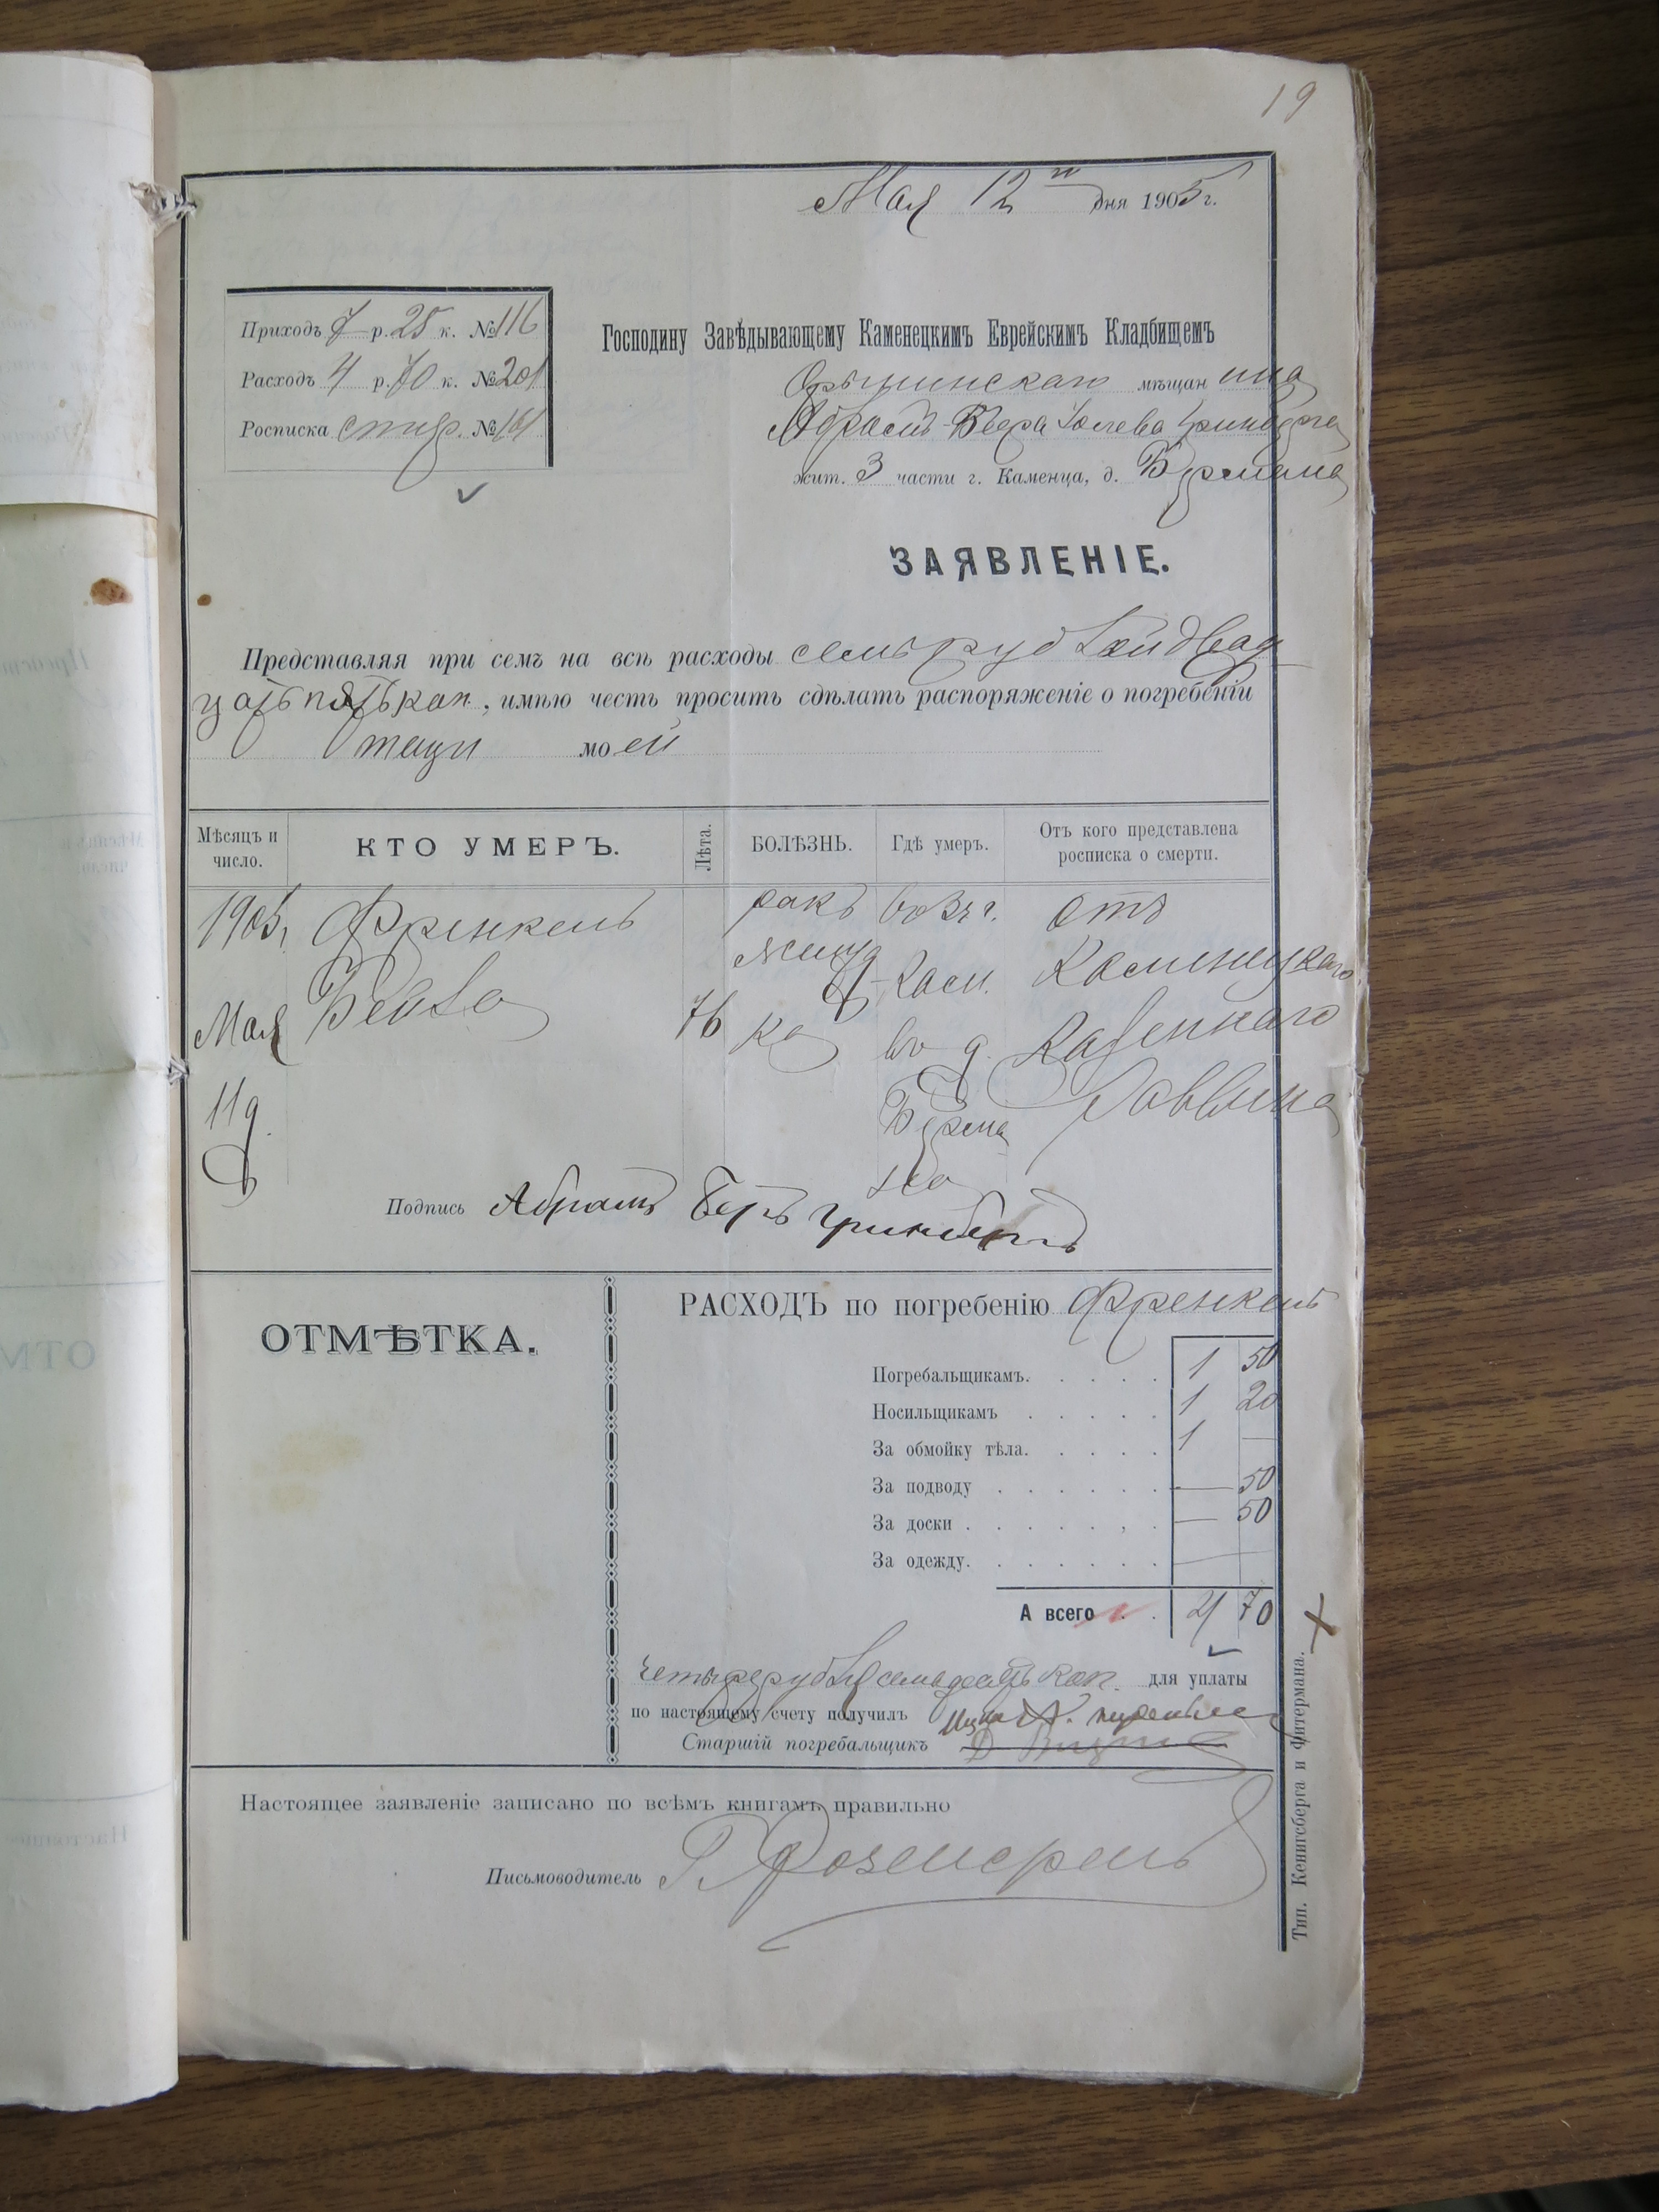 19
Мая 12го дня 1905 г.
Приходъ 7 р. 25 к. № 116
Расходъ 4 р. 70 к. № 201
Росписка №161
Господину Завѣдывающему Каменецкимъ Еврейскимъ Кладбищемъ
мѣщанина
Абрамъ-Бера Гринберга
жит. 3 части г. Каменца, д. Бурмана
ЗАЯВЛЕНІЕ.
Представляя при семъ на всѣ расходы семь рублей двад
цать пять коп., имѣю честь просить сдѣлать распоряженіе о погребеніи
тещи моей
Мѣсяцъ и число.
КТО УМЕРЪ.
Лѣта.
БОЛѢЗНЬ.
Гдѣ умеръ.
Отъ кого представлена росписка о смерти.
1905 г. Мая 11 д.
Френкель Бейла
76
ракъ желудка
во 3 ч г. Кам. въ д. Бурмана
отъ Каменецкаго Казеннаго Раввина
Подпись Абрамъ Беръ Гринбергъ
ОТМѢТКА.
РАСХОДЪ по погребенію Френкель
Погребальщикамъ. 1 50
Носильщикамъ 1 20
За обмойку тѣла. 1 —
За подводу — 50
За доски — 50
За одежду. —
А всего 4 70
Четыре рубля семьдесятъ коп. для уплаты
по настоящему счету получилъ
Старшій погребальщикъ
Настоящее заявленіе записано по всѣмъ книгамъ правильно
Письмоводитель
Тип. Кенигсберга и Фитермана.